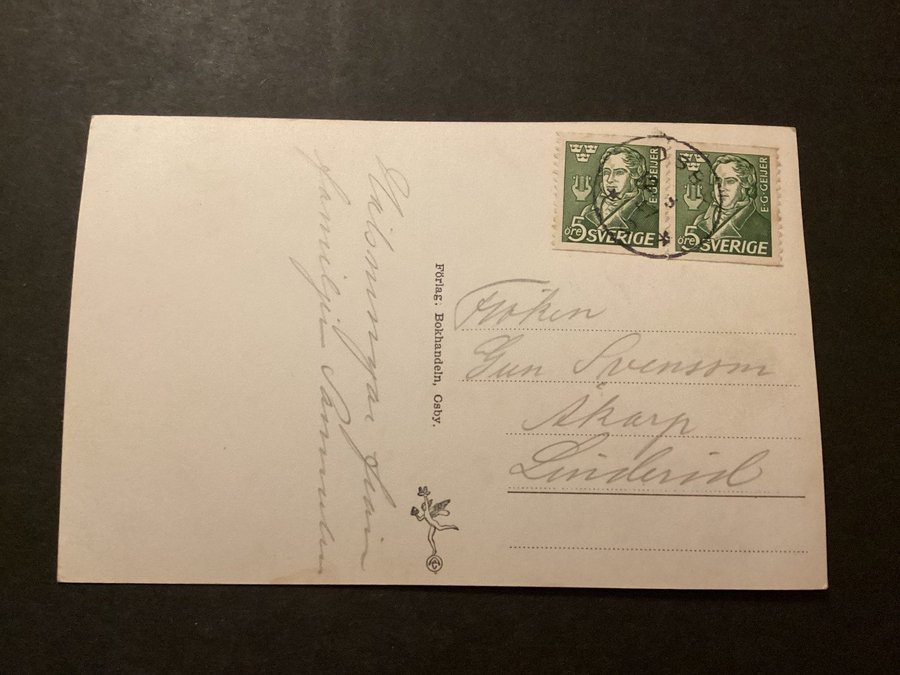 Hälsningar från
familjen Samuelsson
Förlag: Bokhandeln, Osby.
5 öre SVERIGE
E·G·GEIJER
5 öre SVERIGE
E·G·GEIJER
Fröken
Gun Svensson
Åkarp
Linderöd